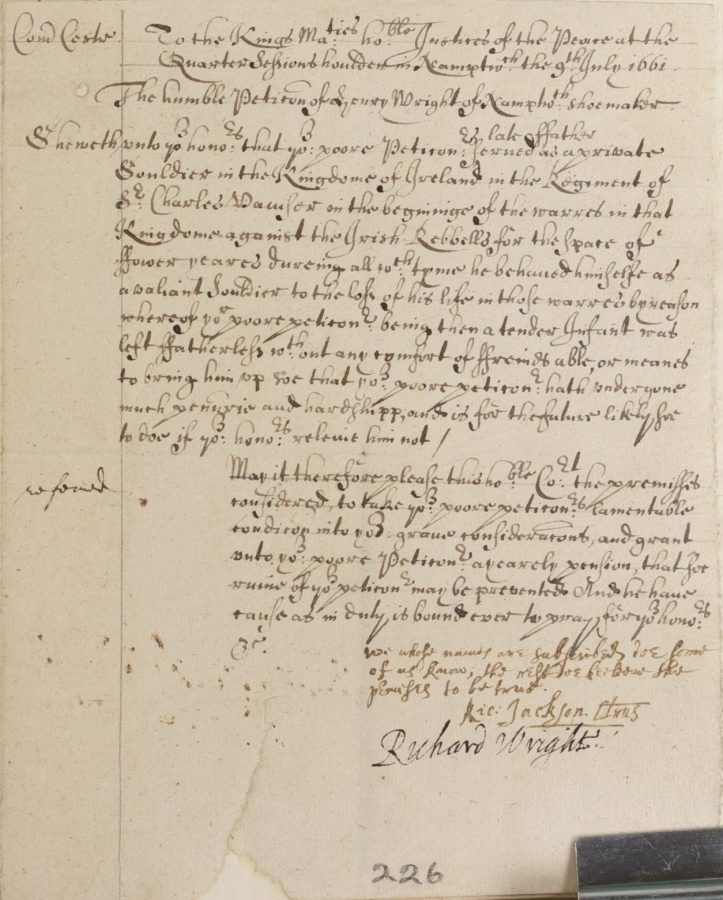 Com Cestr. To the Kings Ma:ties ho:ble Justices of the Peace at the
Quarter Sessions houlden in Namptw:ch the 9th July 1661
The humble Peticon of Henry Wright of Nampw:ch shoemaker
Sheweth unto yo:r hono:rs that yo:r poore Peticon:rs late ffather served as a private
Souldier in the Kingdome of Ireland in the Regiment of
S:r Charles in the beginninge of the warres in that
Kingdome against the Irish Rebbells for the space of
ffower yeares dureing all w:ch tyme he behaved himselfe as
a valiant Souldier to the loss of his life in those warres by reason
whereof yo:r poore peticon:r being then a tender Infant was
left ffatherless w:th out any comfort of ffreinds able, or meanes
to bring him up Soe that yo:r poore peticon:r hath undergone
much penurie and hardshipp, and is for the future likely soe
to doe if yo:r hono:rs releive him not /
May it therefore please this ho:ble Co:rt the premisses
considered, to take yo:r poore peticon:rs lamentable
condicon into yo:r grave consideracons, and grant
unto yo:r poore Peticon:r a yearely pension, that soe
ruine of yo:r peticon:r may be prevented And he have
cause as in duty is bound ever to pray for yo:r hono:rs
&c.
we whose names are subscribed doe some
of us know, the rest doe beleeve the
to be true
Ric: Jackson
Richard Wright
226